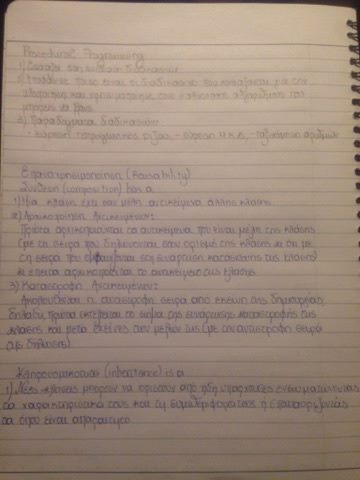 Procedural Programming
1) Εστιάζει στη σχεδίαση διαδικασιών
2) διαδικασίες που χρειάζεσαι για την
και χρησιμοποίησε τους καλύτερους αλγορίθμους που
μπορείς να βρεις
3) Παραδείγματα διαδικασιών
· εύρεση τετραγωνικής ρίζας, - εύρεση Μ.Κ.Δ, - ταξινόμηση αριθμών
Επαναχρησιμοποίηση (Reusability)
Σύνθεση (composition) has a
1) Μια κλάση έχει σαν μέλη αντικείμενα άλλης κλάσης.
2) Αρχικοποίηση Αντικειμένων:
Πρώτα αρχικοποιούνται τα αντικείμενα που είναι μέλη της κλάσης
(με τη σειρά που δηλώνονται στον ορισμό της κλάσης κι όχι με
τη σειρά που εμφανίζονται στη συνάρτηση κατασκευής της κλάσης)
κι έπειτα αρχικοποιείται το αντικείμενο της κλάσης.
3) Καταστροφή Αντικειμένων:
Ακολουθείται η αντίστροφη σειρά από εκείνη της δημιουργίας
δηλαδή πρώτα εκτελείται το σώμα της συνάρτησης καταστροφής της
κλάσης και μετά εκείνες των μελών της (με την αντίστροφη σειρά
της δήλωσης).
Κληρονομικότητα (inheritance) is a
1) Νέες κλάσεις μπορούν να οριστούν από ήδη υπάρχουσες ενσωματώνοντας
τα χαρακτηριστικά τους και τη συμπεριφορά τους ή επαναορίζοντάς
τα όπου είναι απαραίτητο